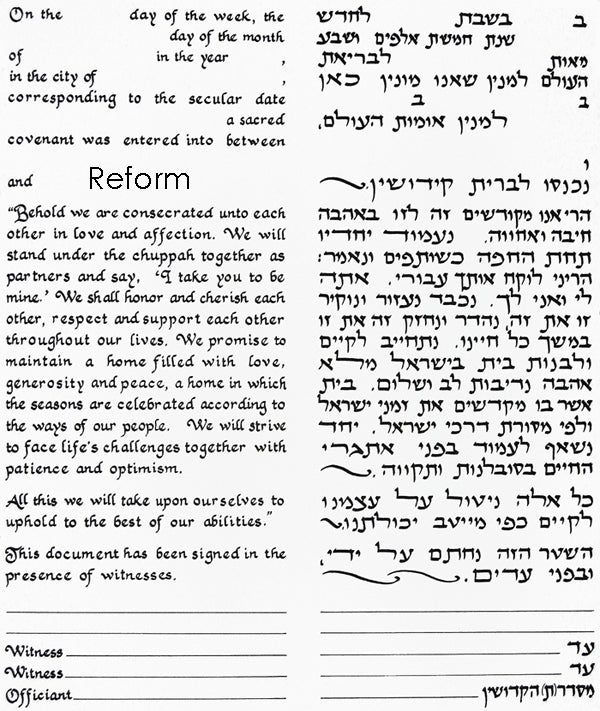 On the day of the week, the
day of the month
of in the year ,
in the city of ,
corresponding to the secular date
a sacred
covenant was entered into between
and Reform
“Behold we are consecrated unto each
other in love and affection. We will
stand under the chuppah together as
partners and say, ‘I take you to be
mine.’ We shall honor and cherish each
other, respect and support each other
throughout our lives. We promise to
maintain a home filled with love,
generosity and peace, a home in which
the seasons are celebrated according to
the ways of our people. We will strive
to face life's challenges together with
patience and optimism.
All this we will take upon ourselves to
uphold to the best of our abilities.”
This document has been signed in the
presence of witnesses.
Witness
Witness
Officiant
ב בשבת לחדש
שנת חמשת אלפים ושבע
מאות לבריאת
העולם למנין שאנו מונין כאן
ב ב
למנין אומות העולם,
ו
נכנסו לברית קידושין.
הרי אנו מקודשים זה לזו באהבה
חיבה ואחווה. נעמוד יחדיו
תחת החפה כשותפים ונאמר:
הריני לוקח אותך עבורי. אתה
לי ואני לך. נכבד נעזור ונוקיר
זו את זה, נהדר ונחזק זה את זו
במשך כל חיינו. נתחייב לקיים
ולבנות בית בישראל מלא
אהבה נדיבות לב ושלום. בית
אשר בו מקדשים את זמני ישראל
ולפי מסורת דרכי ישראל. יחד
נשאף לעמוד בפני אתגרי
החיים בסובלנות ותקווה.
כל אלה ניטול על עצמנו
לקיים כפי מייטב יכולתנו.
השטר הזה נחתם על ידי,
ובפני עדים.
עד
עד
מסדר(ת) הקדושין